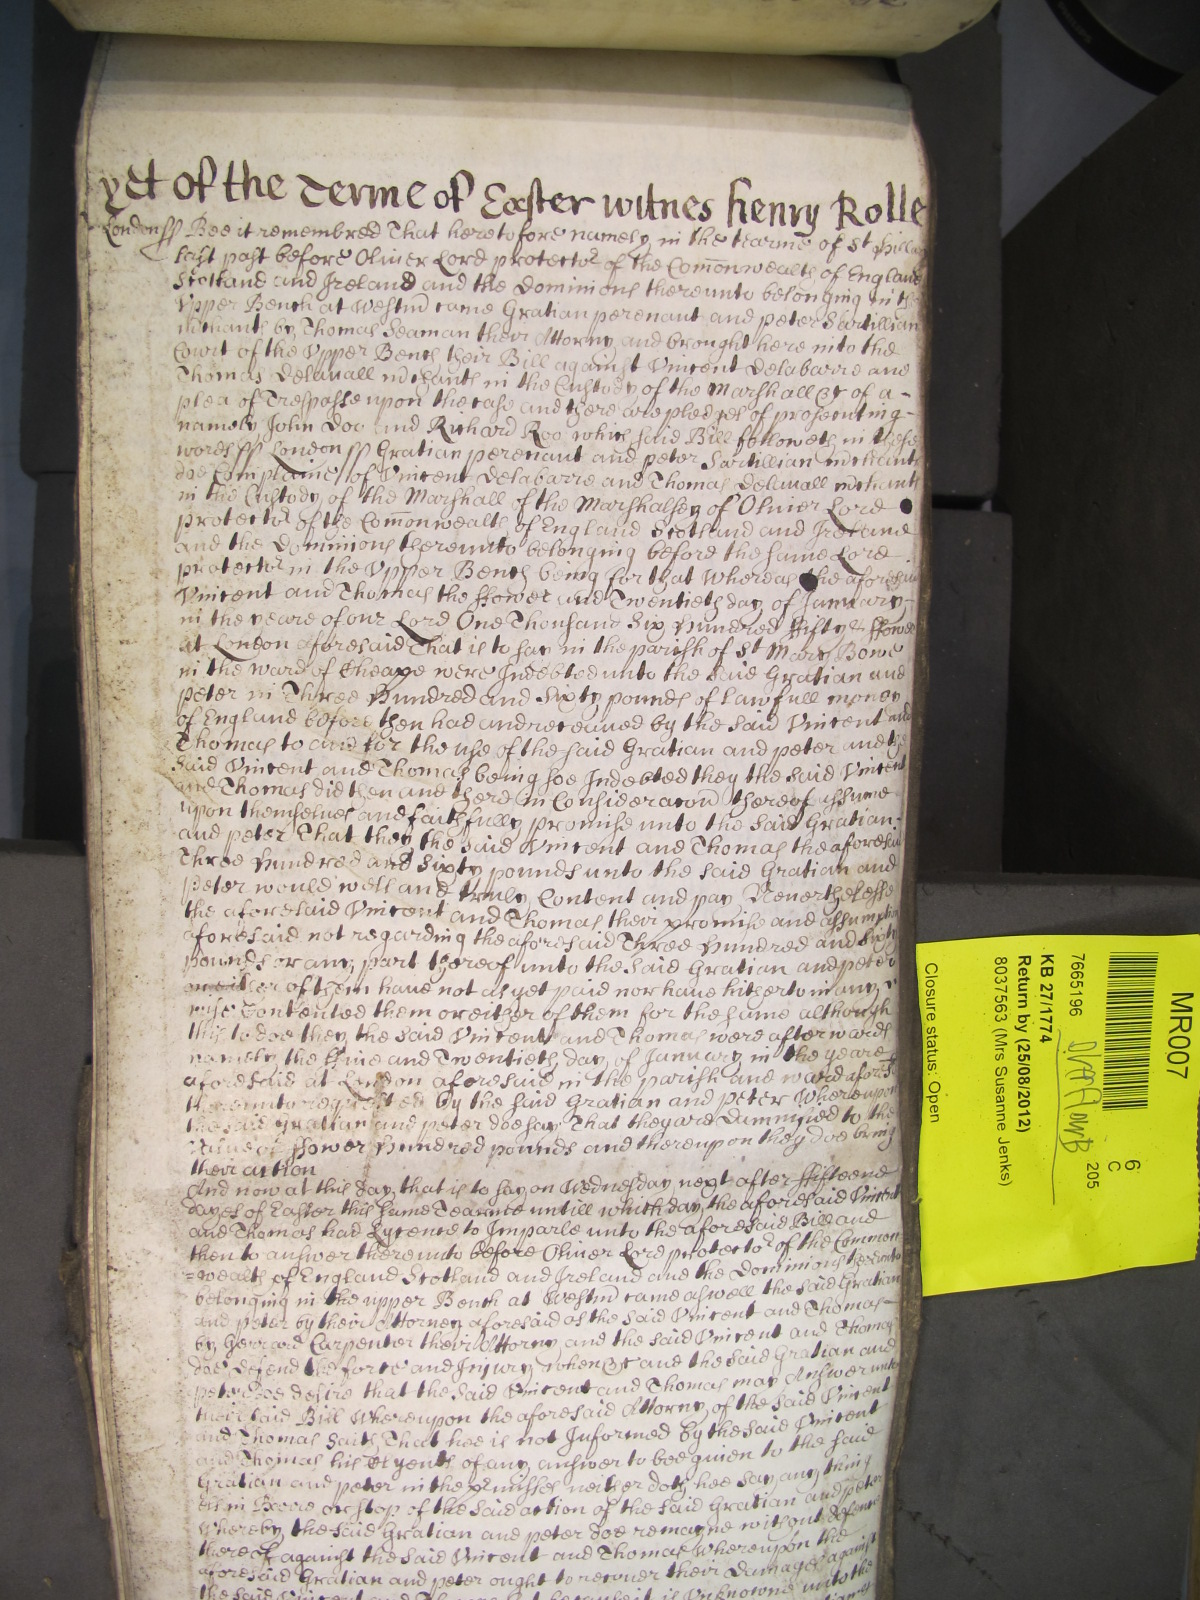 yet of the Terme of Easter witnes henry Rolle
London ss Bee it remembred That heretofore namely in the tearme of St Hillary
last past before Oliver Lord protector of the Com̄onwealth of England
Scotland and Ireland and the Dominions thereunto belonging in the
Upper Bench at Westm̄ came Gratian perenant and peter Sartillian
mchants by Thomas Seaman their Attorny and brought here into the
Court of the Upper Bench their Bill against Vincent Delabarre and
Thomas Delavall mchants in the Custody of the Marshall &c of a
plea of Trespasse upon the case and there are pledges of prosecuting
namely John Doo and Richard Roo which said Bill followeth in these
words ss London ss Gratian perenant and peter Sartillian mchants
doe Complaine of Vincent Delabarre and Thomas Delavall mchants
in the Custody of the Marshall of the Marshalsey of Oliver Lord
protector of the Com̄onwealth of England Scotland and Ireland
and the Dominions thereunto belonging before the same Lord
protector in the Upper Bench being for that Whereas the aforesaid
Vincent and Thomas the ffower and Twentieth day of January
in the yeare of our Lord One Thousand Six Hundred ffifty & ffower
at London aforesaid That is to say in the parish of St Mary Bowe
in the ward of Cheape were Indebted unto the said Gratian and
peter in Three Hundred and Sixty pounds of Lawfull money
of England before then had and receaued by the said Vincent and
Thomas to and for the use of the said Gratian and peter and the
said Vincent and Thomas being soe Indebted they the said Vincent
and Thomas did then and there in Consideracon thereof assume
upon themselues and faithfully promise unto the said Gratian
and peter That they the said Vincent and Thomas the aforesaid
Three Hundred and Sixty pounds unto the said Gratian and
peter would well and truly Content and pay Neverthelesse
the aforesaid Vincent and Thomas their promise and assumption
aforesaid not regarding the aforesaid Three Hundred and Sixty
pounds or any part thereof unto the said Gratian and peter
or either of them haue not as yet paid nor haue hitherto in any
wise Contented them or either of them for the same although
this to doe they the said Vincent and Thomas were afterwards
namely the ffive and Twentieth day of January in the yeare
aforesaid at London aforesaid in the parish and ward aforesd
thereunto requested by the said Gratian and peter Whereupon
the said Gratian and peter doe say That they are Damnified to the
value of ffower Hundred pounds and thereupon they doe bring
their action
And now at this day that is to say on Wednesday next after ffifteene
dayes of Easter this same Tearme untill which day the aforesaid Vincent
and Thomas had Lycence to Imparle unto the aforesaid Bill and
then to answer thereunto before Oliver Lord protector of the Common
=wealth of England Scotland and Ireland and the Dominions thereunto
belonging in the upper Bench at Westm̄ came aswell the said Gratian
and peter by their Attorney aforesaid as the said Vincent and Thomas
by Gerrard Carpenter their Attorny and the said Vincent and Thomas
doe defend the force and Injury when &c and the said Gratian and
peter doe desire that the said Vincent and Thomas may Answer unto
their said Bill Whereupon the aforesaid Attorny of the said Vincent
and Thomas saith That hee is not Informed by the said Vincent
and Thomas his Clyents of any answer to bee giuen to the said
Gratian and peter in the p̄misses neither doth hee say any thing
els in Barre or stop of the said action of the said Gratian and peter
Whereby the said Gratian and peter doe remayne without defence
thereof against the said Vincent and Thomas Whereupon the
aforesaid Gratian and peter ought to recouer their Damages against
the said Vincent and Thomas but because it is Unknowne unto the
MR007
6
C
205
7665196
KB 27/1774
Return by (25/08/2012)
8037563 (Mrs Susanne Jenks)
Closure status: Open